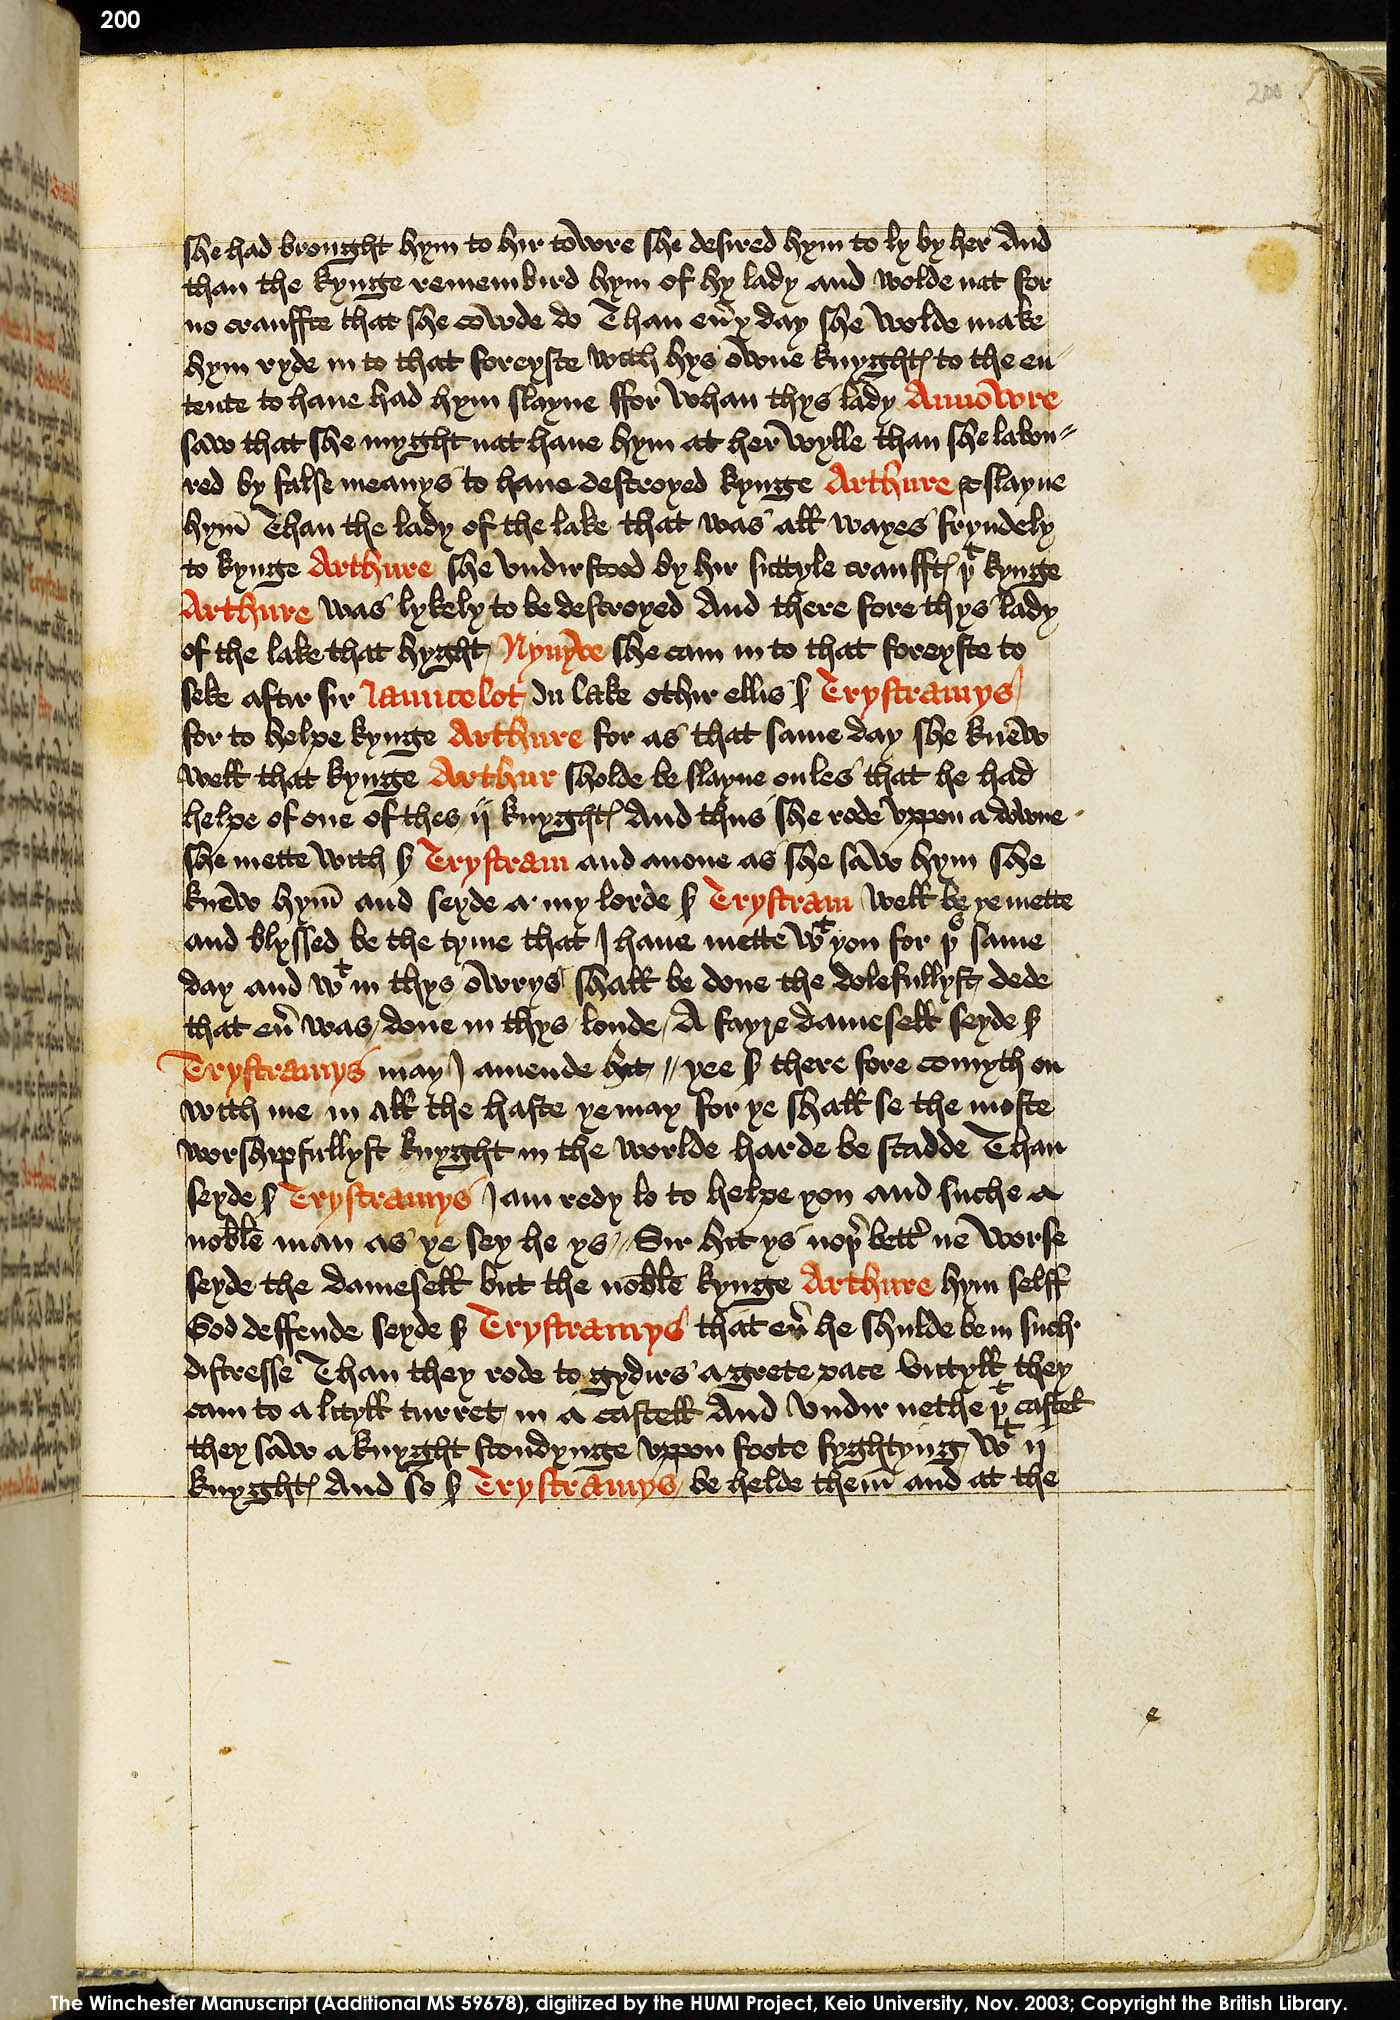 200
200
she had brought hym to hir towre she desired hym to ly by her And
than the kynge remembird hym of hy lady and wolde nat for
no crauffte that she cowde do Than eu̾y day she wolde make
hym ryde in to that foreyste with hys owne knyghtꝭ to the en⸗
tente to haue had hym slayne ffor whan thys lady Annowre
saw that she myght nat haue hym at her wylle than she labou⸗
red by false meanys to haue destroyed kynge Arthure & slayne
hym̄ Than the lady of the lake that was all wayes fryndely
to kynge Arthure she vndirstood by hir suttyle craufftꝭ þᵗ kynge
Arthure was lykely to be destroyed And there fore thys lady
of the lake that hyght Nynyve she cam in to that foreyste to
seke aftir sir Launcelot du lake othir ellis sʳ Trystramys
for to helpe kynge Arthure for as that same day she knew
well that kynge Arthur sholde be slayne onles that he had
helpe of one of thes ij knyghtꝭ And thus she rode vppon a downe
she mette with sʳ Trystram and anone as she saw hym she
knew hym̄ and seyde a my lorde sʳ Trystram well be ye mette
and blyssed be the tyme that I haue mette wᵗ you for þˢ same
day and wᵗ in thys owrys shall be done the dolefullyst dede
that eu̾ was done in thys londe / A fayre damesell seyde sʳ
Trystramys may I amende hit // yee sʳ there fore comyth on
with me in all the haste ye may for ye shall se the moste
worshipfullyst knyght in the worlde harde be stadde Than
seyde sʳ Trystramys I am redy lo to helpe you and suche a
noble man as ye sey he ys // Sir hit ys noþ̾ bett̾ ne worse
seyde the damesell but the noble kynge Arthure hym selff
God deffende seyde sʳ Trystramys that eu̾ he shulde be in such
distresse Than they rode to gydirs a grete pace vntyll they
cam to a lityll turret in a castell And vndir nethe þᵗ castel
they saw a knyght stondynge vppon foote fyghtyng wᵗ ij
knyghtꝭ And so sʳ Trystramys be helde them̄ and at the
The Winchester Manuscript (Additional MS 59678), digitized by the HUMI Project, Keio University, Nov. 2003; Copyright the British Library.